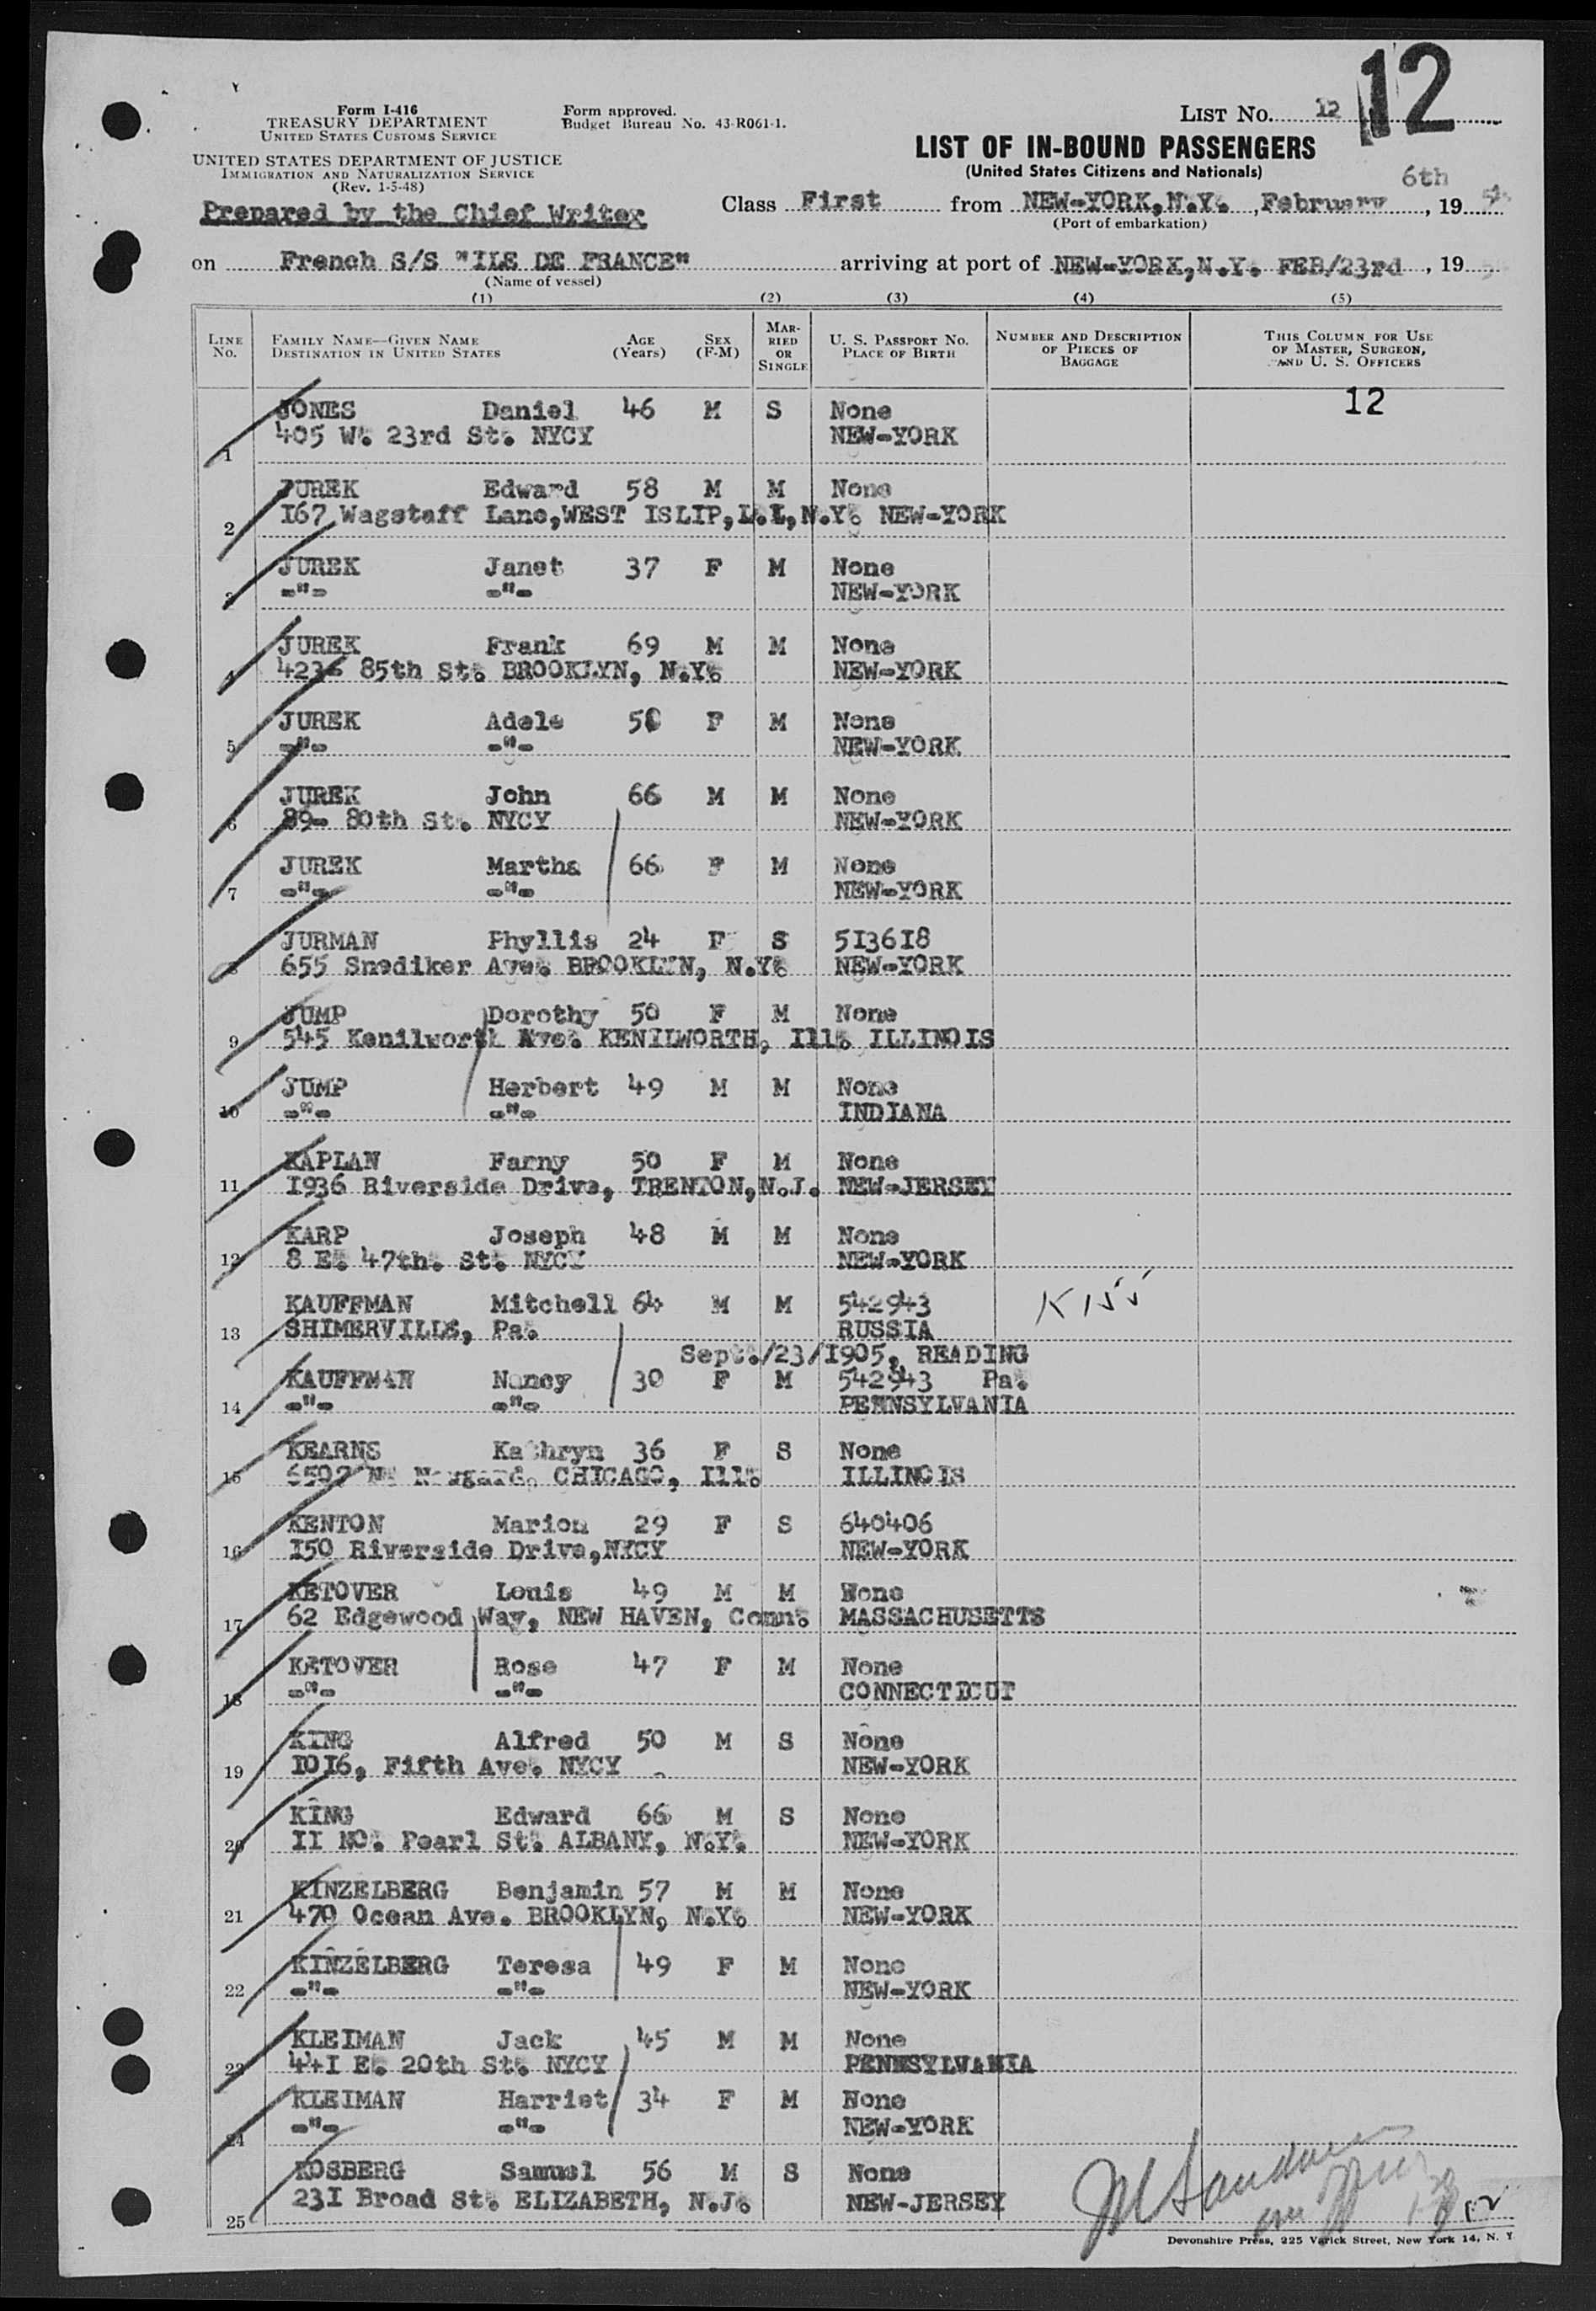 12
Form I-416
TREASURY DEPARTMENT
UNITED STATES CUSTOMS SERVICE
UNITED STATES DEPARTMENT OF JUSTICE
IMMIGRATION AND NATURALIZATION SERVICE
(Rev. 1-5-48)
Form approved.
Budget Bureau No. 43-R061-1.
LIST No. 12
LIST OF IN-BOUND PASSENGERS
(United States Citizens and Nationals)
Prepared by the Chief Writer
Class First from NEW-YORK,N.Y. , February 6th , 19
(Port of embarkation)
on French S/S "ILE DE FRANCE" arriving at port of NEW-YORK,N.Y. FEB/23rd , 19
(Name of vessel)
(1) (2) (3) (4) (5)
LINE No. FAMILY NAME—GIVEN NAME DESTINATION IN UNITED STATES AGE (Years) SEX (F-M) MARRIED OR SINGLE U. S. PASSPORT No. PLACE OF BIRTH NUMBER AND DESCRIPTION OF PIECES OF BAGGAGE THIS COLUMN FOR USE OF MASTER, SURGEON, AND U. S. OFFICERS
JONES Daniel 46 M S None 12
1 405 W. 23rd St. NYCY NEW-YORK
JUREK Edward 58 M M None
2 167 Wagstaff Lane,WEST ISLIP,L.I,N.Y. NEW-YORK
JUREK Janet 37 F M None
3 -"- -"- NEW-YORK
JUREK Frank 69 M M None
4 85th St. BROOKLYN, N.Y. NEW-YORK
JUREK Adele F M None
5 -"- -"- NEW-YORK
JUREK John 66 M M None
6 89- 80th St. NYCY NEW-YORK
JUREK Martha 66 F M None
7 -"- -"- NEW-YORK
JURMAN Phyllis 24 F S 513618
8 655 Snediker Ave. BROOKLYN, N.Y. NEW-YORK
JUMP Dorothy 50 F M None
9 545 Kenilworth Ave. KENILWORTH, Ill. ILLINOIS
JUMP Herbert 49 M M None
10 -"- -"- INDIANA
KAPLAN Fanny 50 F M None
11 1936 Riverside Drive, TRENTON,N.J. NEW-JERSEY
KARP Joseph 48 M M None
12 8 E. 47th. St. NYCY NEW-YORK
KAUFFMAN Mitchell 64 M M 542943
13 SHIMERVILLE, Pa. RUSSIA
Sept./23/1905, READING
KAUFFMAN Nancy 30 F M 542943 Pa.
14 -"- -"- PENNSYLVANIA
KEARNS Kathryn 36 F S None
15 CHICAGO, Ill. ILLINOIS
KENTON Marion 29 F S 640406
16 150 Riverside Drive,NYCY NEW-YORK
KETOVER Louis 49 M M None
17 62 Edgewood Way, NEW HAVEN, Conn. MASSACHUSETTS
KETOVER Rose 47 F M None
18 -"- -"- CONNECTICUT
KING Alfred 50 M S None
19 1016, Fifth Ave. NYCY NEW-YORK
KING Edward 66 M S None
20 11 NO. Pearl St. ALBANY, N.Y. NEW-YORK
KINZELBERG Benjamin 57 M M None
21 470 Ocean Ave. BROOKLYN, N.Y. NEW-YORK
KINZELBERG Teresa 49 F M None
22 -"- -"- NEW-YORK
KLEIMAN Jack 45 M M None
23 441 E. 20th St. NYCY PENNSYLVANIA
KLEIMAN Harriet 34 F M None
24 -"- -"- NEW-YORK
KOSBERG Samuel 56 M S None
25 231 Broad St. ELIZABETH, N.J. NEW-JERSEY
Devonshire Press, 225 Varick Street, New York 14, N. Y.